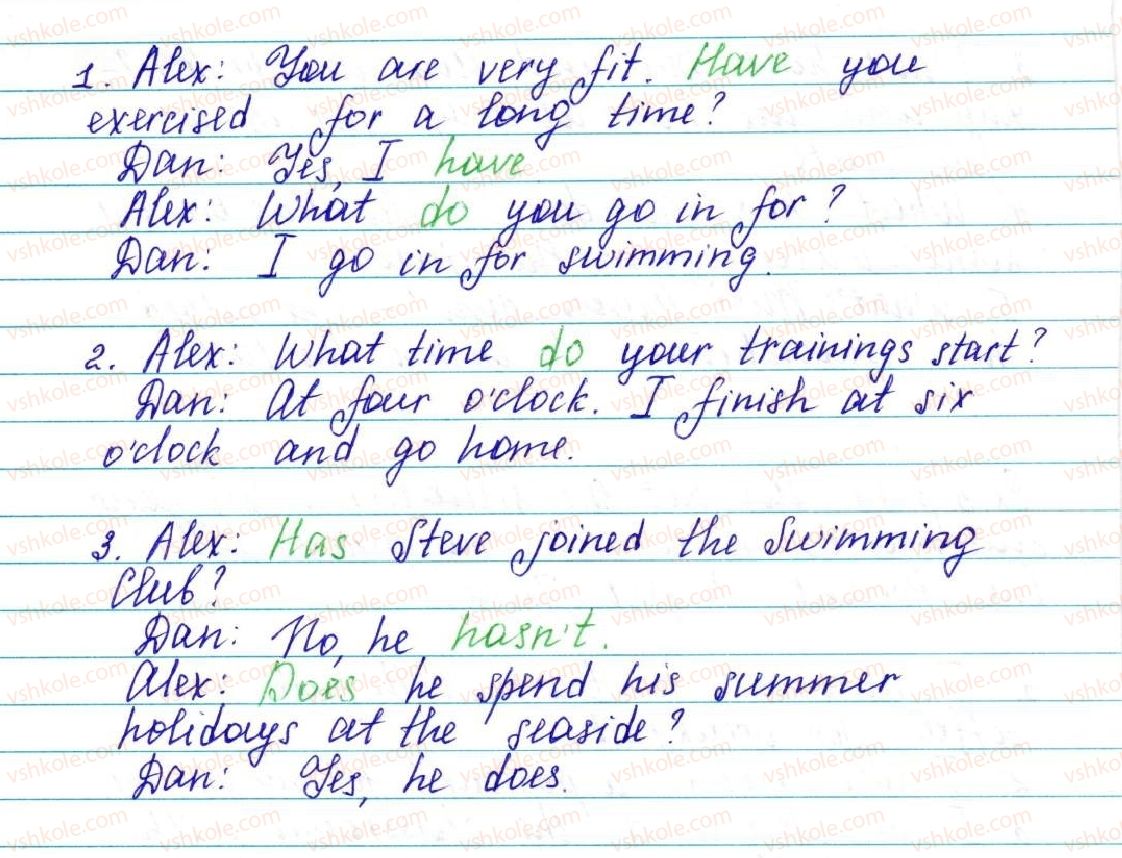 1. Alex: You are very fit. Have you
exercised for a long time?
Dan: Yes, I have
Alex: What do you go in for?
Dan: I go in for swimming.
2. Alex: What time do your trainings start?
Dan: At four o'clock. I finish at six
o'clock and go home.
3. Alex: Has Steve joined the Swimming
Club?
Dan: No, he hasn't.
Alex: Does he spend his summer
holidays at the seaside?
Dan: Yes, he does.